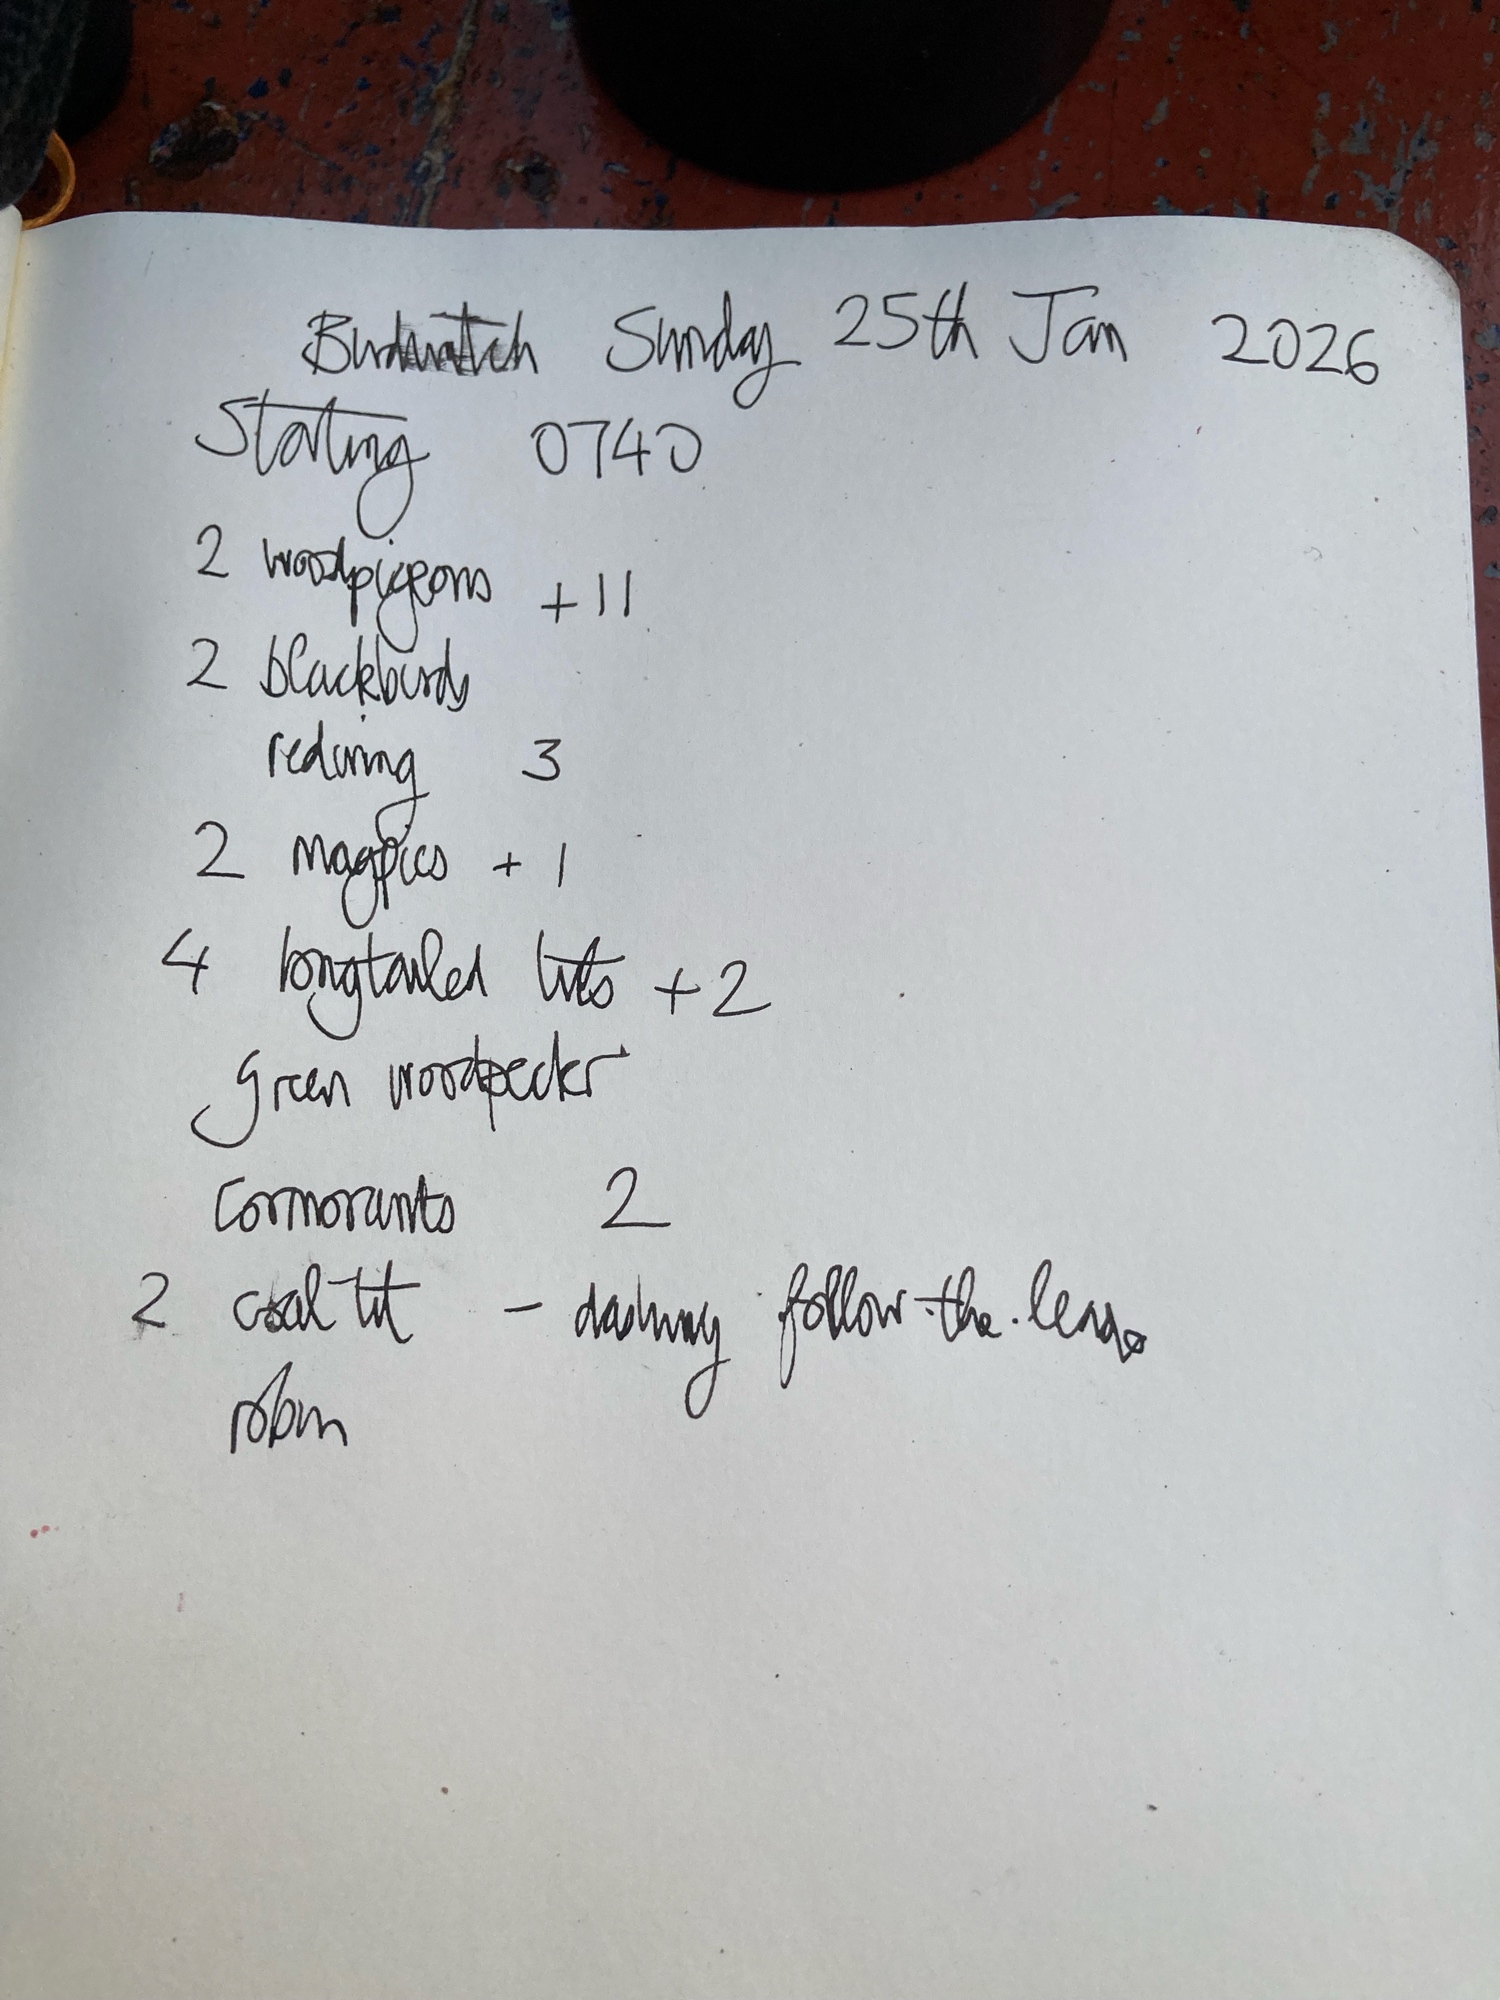 Birdwatch Sunday 25th Jan 2026
Starting 0740
2 woodpigeons +11
2 blackbirds
redwing 3
2 magpies + 1
4 longtailed tits + 2
green woodpecker
cormorants 2
2 coal tit - dashing follow-the-leader
robin